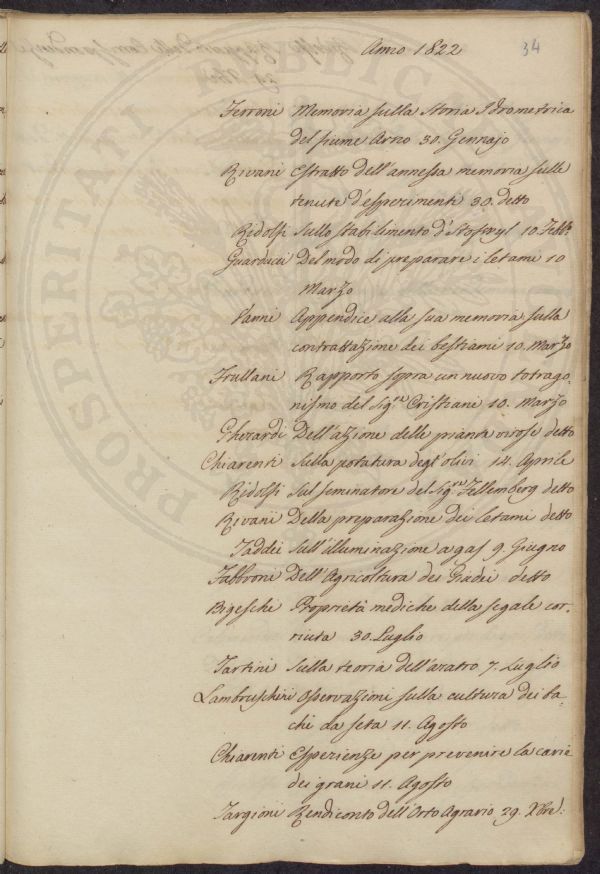 Anno 1822
34
Ferroni Memoria sulla Storia Idrometrica
del fiume Arno 30. Gennajo
Rivani Estratto dell'annessa memoria sulle
tenute d'esperimenti 30. detto
Ridolfi Sullo stabilimento d'Hofwyl 10. Febb.
Guarducci Del modo di preparare i letami 10
Marzo
Vanni Appendice alla sua memoria sulla
contrattazione dei bestiami 10. Marzo
Frullani Rapporto sopra un nuovo totrago-
nismo del Sigre Cristiani 10. Marzo
Gherardi Dell'azione delle piante virose detto
Chiarenti Sulla potatura degl'olivi 14. Aprile
Ridolfi Sul seminatore del Sigre Fellemberg detto
Rivani Della preparazione dei letami detto
Taddei Sull'illuminazione a gas 9. Giugno
Fabbroni Dell'Agricoltura dei Giudei detto
Bigeschi Proprietà mediche della segale cor-
nuta 30. Luglio
Tartini Sulla teoria dell'aratro 7. Luglio
Lambruschini Osservazioni sulla cultura dei ba-
chi da seta 11. Agosto
Chiarenti Esperienze per prevenire la carie
dei grani 11. Agosto
Targioni Rendiconto dell'Orto Agrario 29. Xbre.
PROSPERITATI PUBLICAE